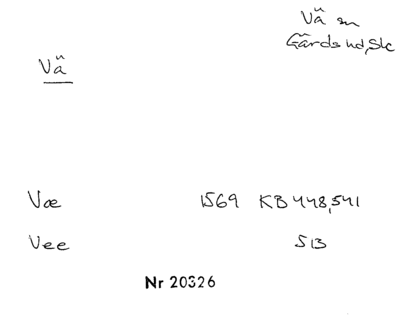 Vä sn
Gärds hd, Slc
Vä
Væ 1569 KB 448, 541
Vee 513
Nr 20326